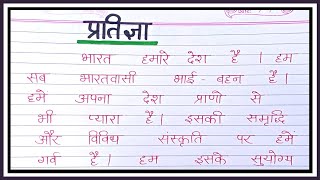 प्रतिज्ञा
भारत हमारे देश है । हम
सब भारतवासी भाई - बहन है ।
हमे अपना देश प्राणो से
भी प्यारा है । इसकी समृद्धि
और विविध संस्कृति पर हमें
गर्व है । हम इसके सुयोग्य